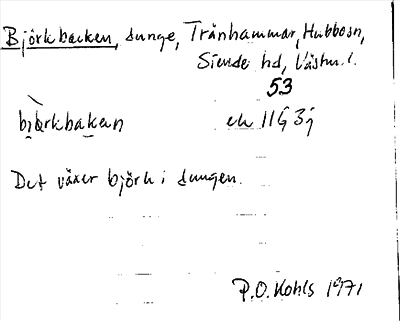 Björkbacken, dunge, Tränhammar, Hubbo sn,
Siende hd, Västm. l.
53
björkbakan
ek 11G 3j
Det växer björk i dungen.
P.O. Kohls 1971